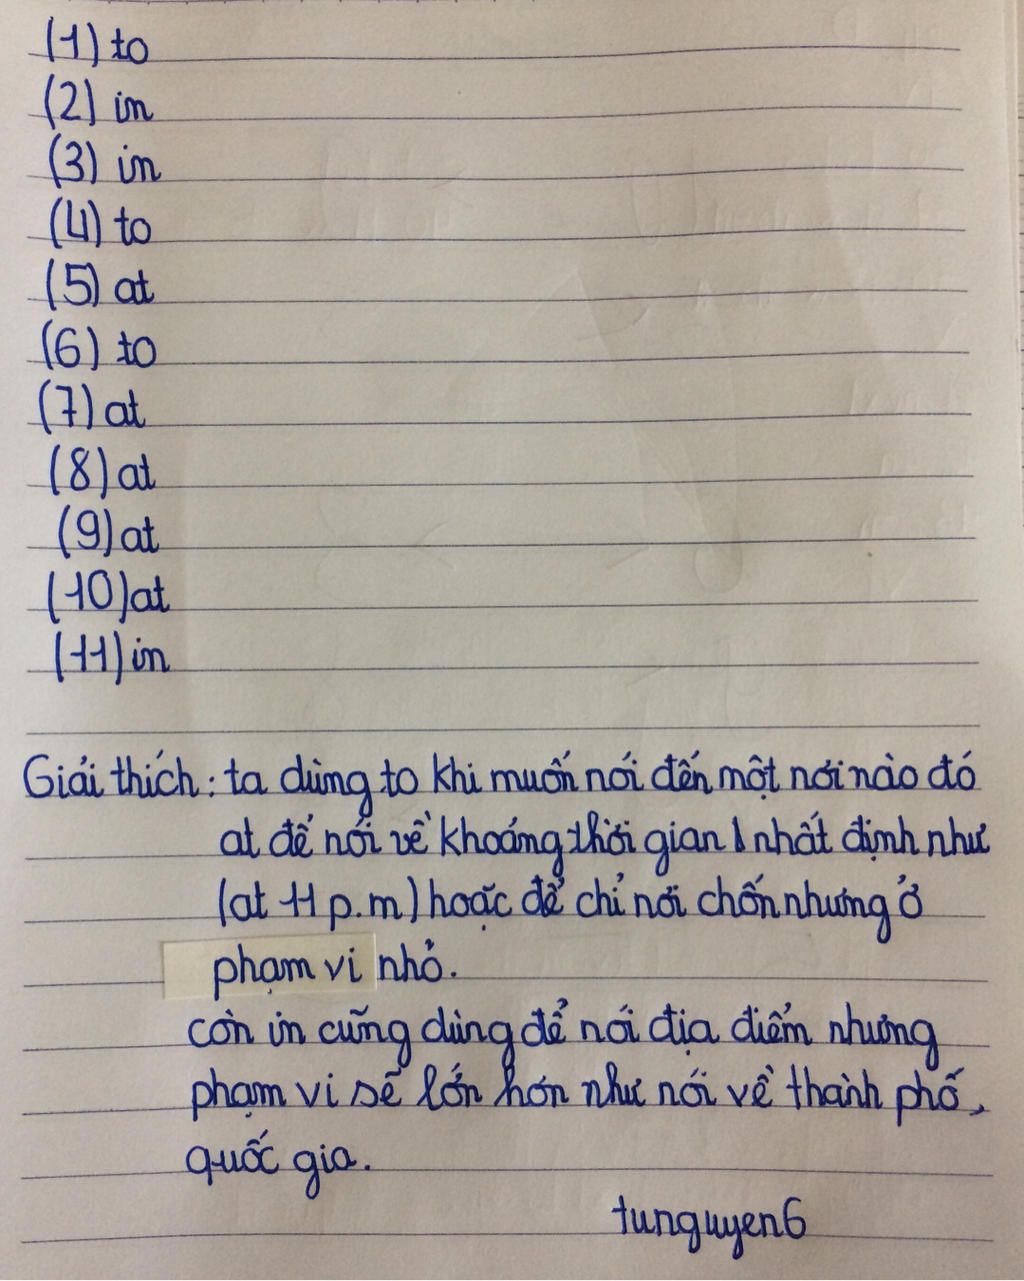 (1) to
(2) in
(3) in
(4) to
(5) at
(6) to
(7) at
(8) at
(9) at
(10) at
(11) in
Giải thích: ta dùng to khi muốn nói đến một nơi nào đó
at để nói về khoảng thời gian nhất định như
(at 11 p.m) hoặc để chỉ nơi chốn nhưng ở
phạm vi nhỏ.
còn in cũng dùng để nói địa điểm nhưng
phạm vi sẽ lớn hơn như nói về thành phố,
quốc gia.
tunguyen6